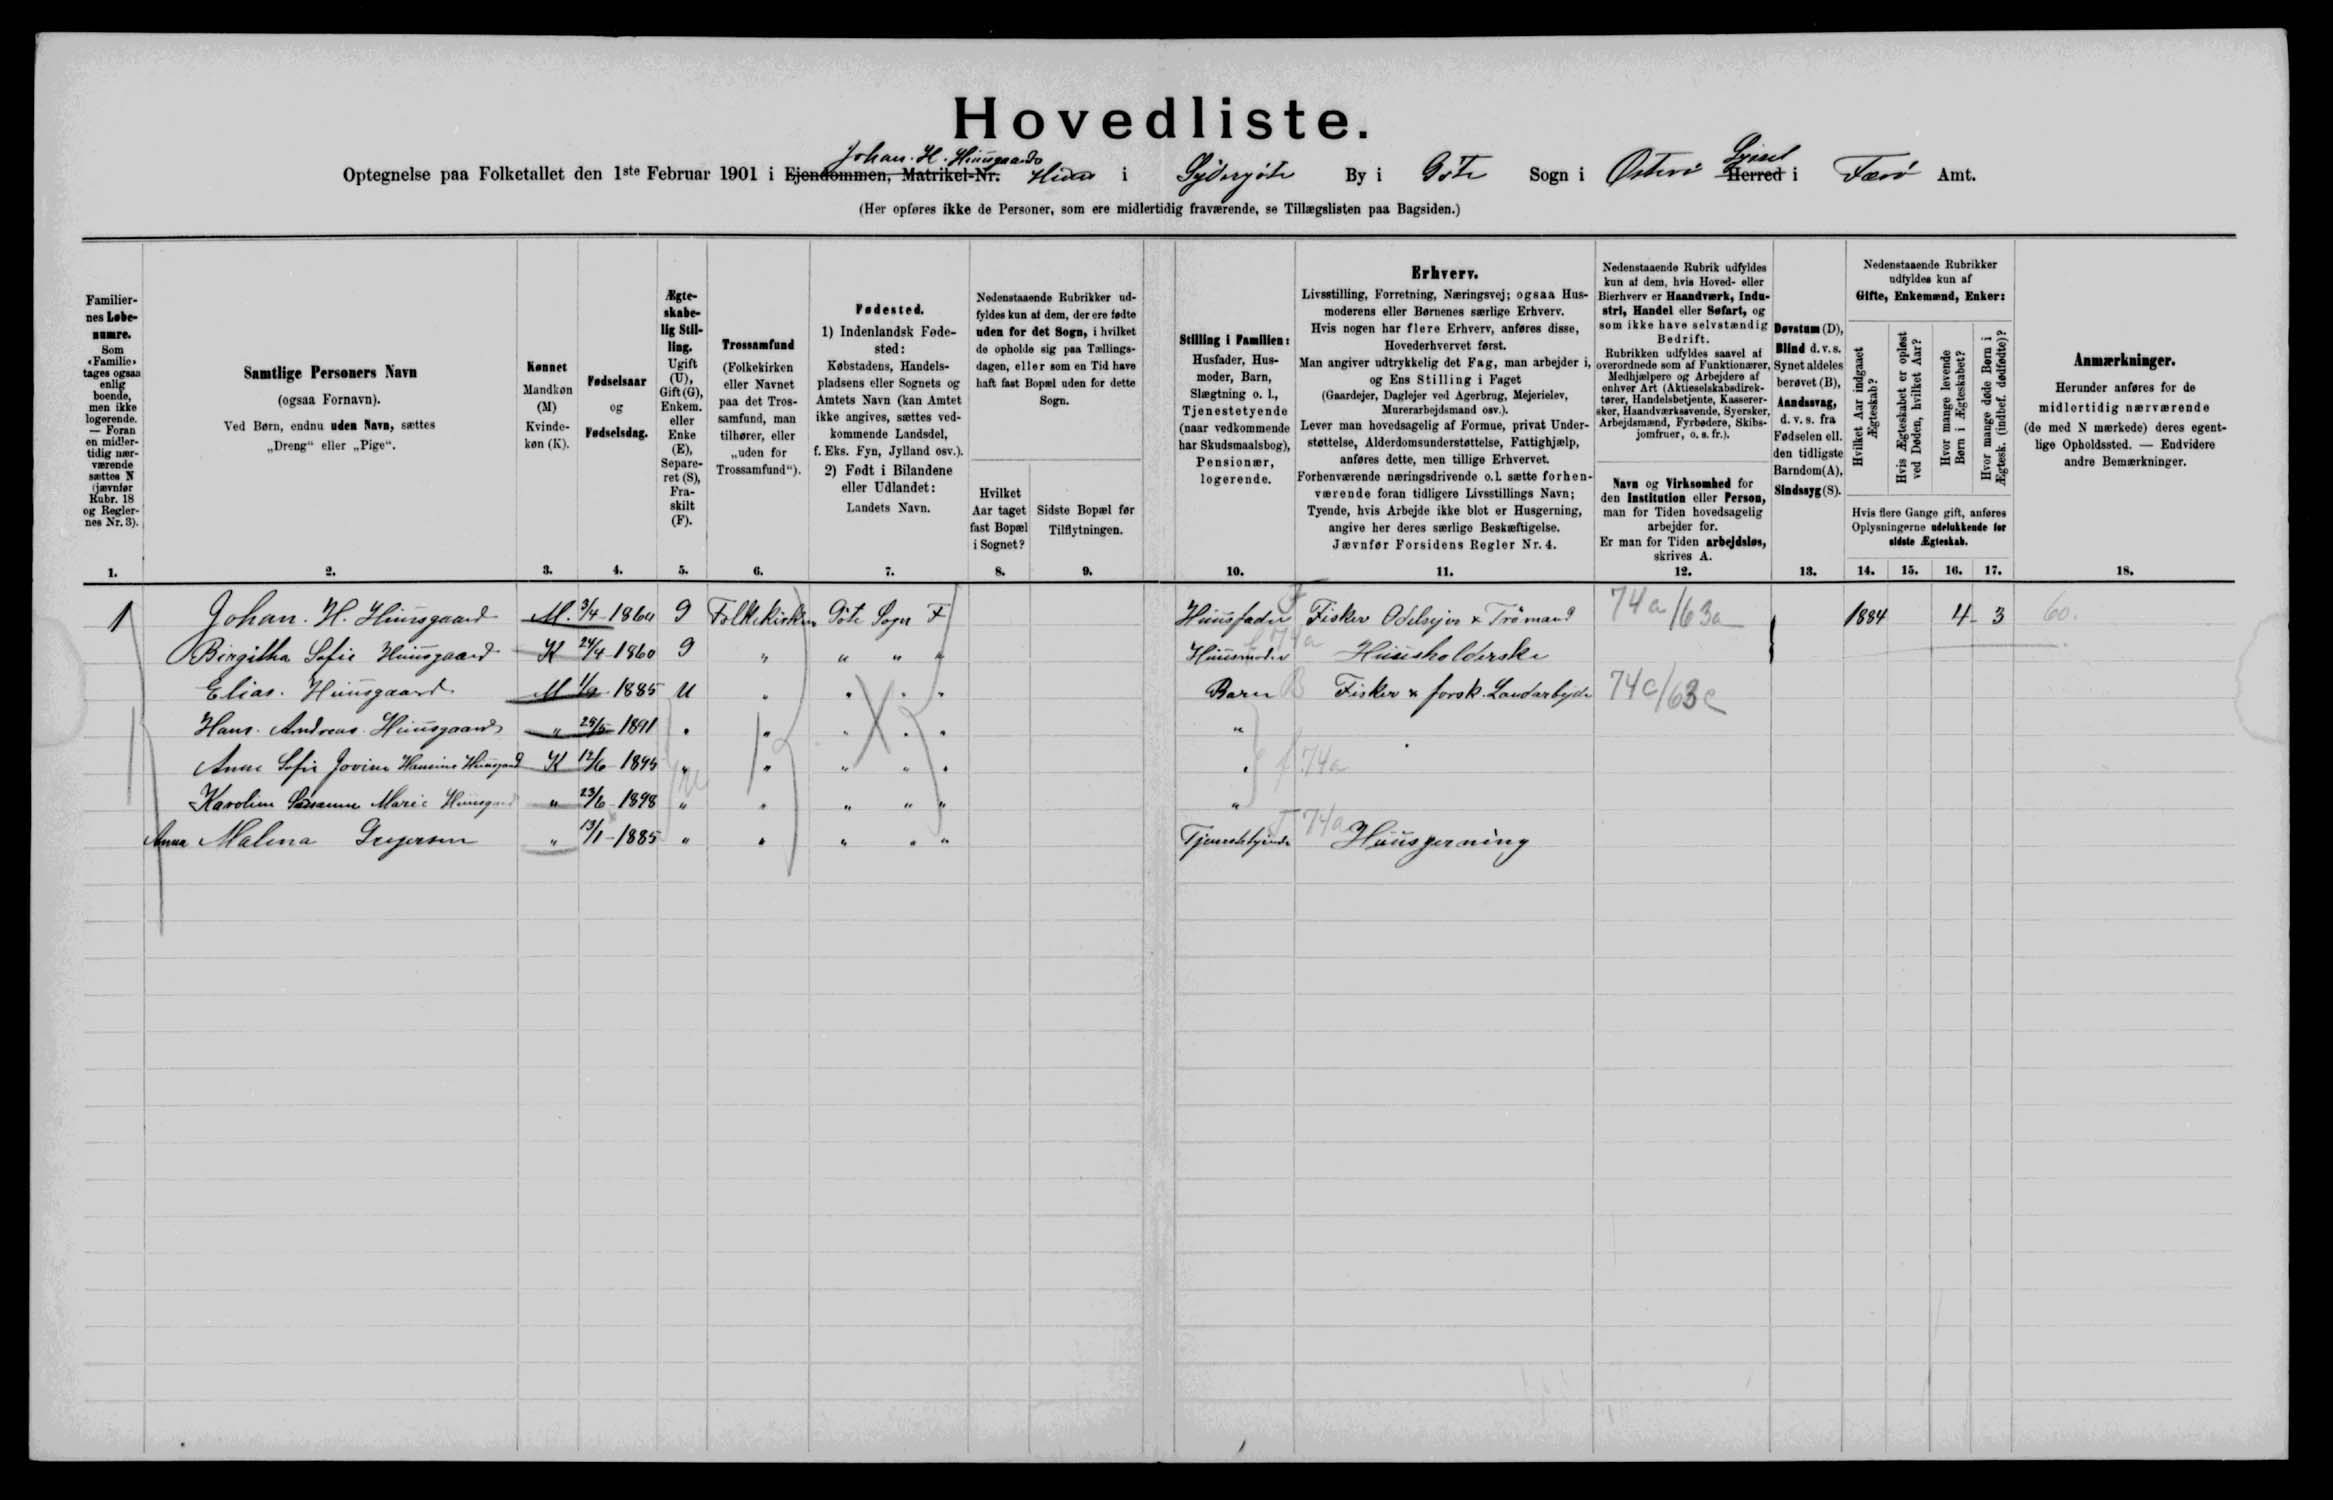 Hovedliste.
Johan. H. Huusgaards
Optegnelse paa Folketallet den 1ste Februar 1901 i Ejendommen, Matrikel-Nr. Huus i Sydergöte By i Göte Sogn i Österö Syssel Herred i Færö Amt.
(Her opføres ikke de Personer, som ere midlertidig fraværende, se Tillægslisten paa Bagsiden.)
Familiernes Løbenumre. Som «Familie» tages ogsaa enlig boende, men ikke logerende. — Foran en midlertidig nærværende sættes N (jævnfør Rubr. 18 og Reglernes Nr. 3).
Samtlige Personers Navn
(ogsaa Fornavn).
Ved Børn, endnu uden Navn, sættes „Dreng“ eller „Pige“.
Kønnet
Mandkøn (M)
Kvindekøn (K).
Fødselsaar og Fødselsdag.
Ægteskabelig Stilling. Ugift (U), Gift (G), Enkem. eller Enke (E), Separeret (S), Fraskilt (F).
Trossamfund
(Folkekirken eller Navnet paa det Trossamfund, man tilhører, eller „uden for Trossamfund“).
Fødested.
1) Indenlandsk Fødested: Købstadens, Handelspladsens eller Sognets og Amtets Navn (kan Amtet ikke angives, sættes vedkommende Landsdel, f. Eks. Fyn, Jylland osv.).
2) Født i Bilandene eller Udlandet: Landets Navn.
Nedenstaaende Rubrikker udfyldes kun af dem, der ere fødte uden for det Sogn, i hvilket de opholde sig paa Tællingsdagen, eller som en Tid have haft fast Bopæl uden for dette Sogn.
Hvilket Aar taget fast Bopæl i Sognet?
Sidste Bopæl før Tilflytningen.
Stilling i Familien:
Husfader, Husmoder, Barn, Slægtning o. l., Tjenestetyende (naar vedkommende har Skudsmaalsbog), Pensionær, logerende.
Erhverv.
Livsstilling, Forretning, Næringsvej; ogsaa Husmoderens eller Børnenes særlige Erhverv.
Hvis nogen har flere Erhverv, anføres disse, Hovederhvervet først.
Man angiver udtrykkelig det Fag, man arbejder i, og Ens Stilling i Faget
(Gaardejer, Daglejer ved Agerbrug, Mejerielev, Murerarbejdsmand osv.).
Lever man hovedsagelig af Formue, privat Understøttelse, Alderdomsunderstøttelse, Fattighjælp, anføres dette, men tillige Erhvervet.
Forhenværende næringsdrivende o.l. sætte forhenværende foran tidligere Livsstillings Navn;
Tyende, hvis Arbejde ikke blot er Husgerning, angive her deres særlige Beskæftigelse.
Jævnfør Forsidens Regler Nr. 4.
Nedenstaaende Rubrik udfyldes kun af dem, hvis Hoved- eller Bierhverv er Haandværk, Industri, Handel eller Søfart, og som ikke have selvstændig Bedrift.
Rubrikken udfyldes saavel af overordnede som af Funktionærer, Medhjælpere og Arbejdere af enhver Art (Aktieselskabsdirektører, Handelsbetjente, Kassererسker, Haandværkssvende, Syersker, Arbejdsmænd, Fyrbødere, Skibsjomfruer, o. s. fr.).
Navn og Virksomhed for den Institution eller Person, man for Tiden hovedsagelig arbejder for.
Er man for Tiden arbejdsløs, skrives A.
Døvstum (D), Blind d. v. s. Synet aldeles berøvet (B), Aandssvag, d. v. s. fra Fødselen ell. den tidligste Barndom (A), Sindssyg (S).
Nedenstaaende Rubrikker udfyldes kun af Gifte, Enkemænd, Enker:
Hvilket Aar indgaaet Ægteskab?
Hvis Ægteskabet er opløst ved Døden, hvilket Aar?
Hvor mange levende Børn i Ægteskabet?
Hvor mange døde Børn i Ægtesk. (indbef. dødfødte)?
Hvis flere Gange gift, anføres Oplysningerne udelukkende for sidste Ægteskab.
Anmærkninger.
Herunder anføres for de midlertidig nærværende (de med N mærkede) deres egentlige Opholdssted. — Endvidere andre Bemærkninger.
1. 2. 3. 4. 5. 6. 7. 8. 9. 10. 11. 12. 13. 14. 15. 16. 17. 18.
1 Johan. H. Huusgaard M. 3/4-1864 G Folkekirken Göte Sogn F Huusfader F Fisker Odelsejer & Trömand 74a/63a 1884 4 - 3 60.
Birgitha Sofie Huusgaard K 24/4-1860 G " " " " Huusmoder f 74a Huusholderske
Elias. Huusgaard M 1/2-1885 U " " " " Barn B Fisker & forsk. Landarbejde 74c/63c
Hans. Andreas. Huusgaard " 24/5-1891 " " " " " "
Anne Sofie Jovine Hansine Huusgaard K 12/6-1895 " " " " " " f 74a
Karoline Susanne Marie Huusgaard " 23/6-1898 " " " " " "
Anna Malena Gregersen " 13/1-1885 " " " " " Tjenestetyende T 74a Huusgerning